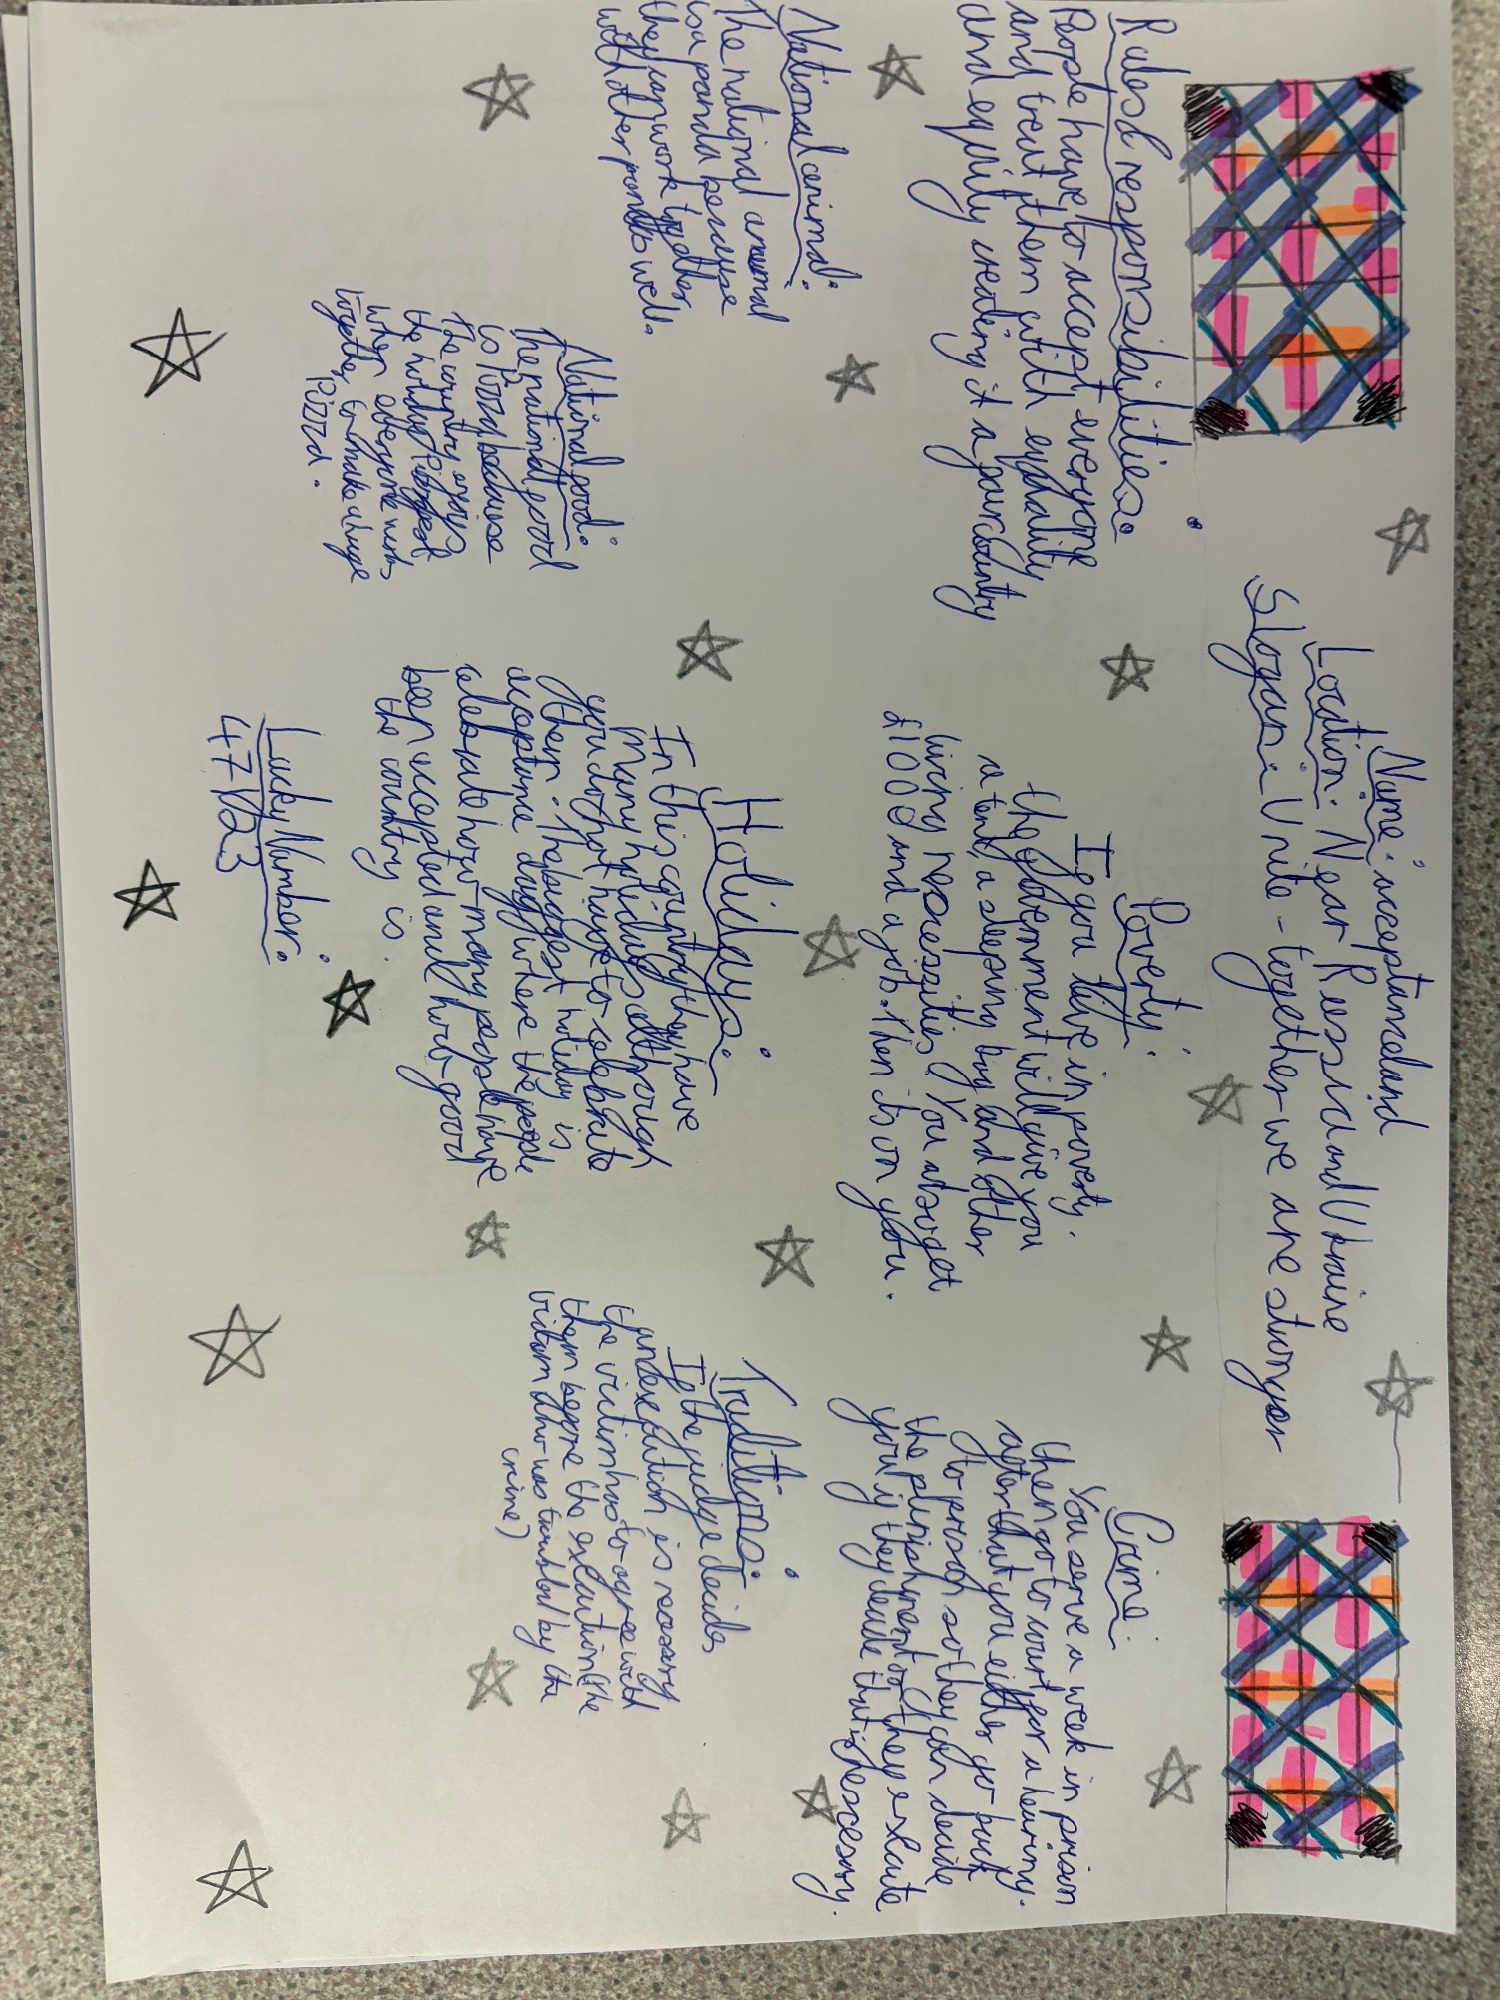 Name: acceptanceland
Location: Near Russia and Ukraine
Slogan: Unite - together we are stronger
Rules & responsibilities:
People have to accept everyone
and treat them with equality
and equity making it a fair country
Poverty:
If you live in poverty.
the government will give you
a tent, a sleeping bag and other
living necessities. You also get
£1000 and a job. Then its on you.
Crime:
You serve a week in prison
then go to court for a hearing.
after that you either go back
to prison so they can decide
the punishment or they execute
you if they decide that is nescesary.
National animal:
The national animal
is a panda because
they can work together
with other pandas well.
National food:
The national food
is Pizza because
The country enjoys
the
when everyone works
together, can make a huge
Pizza.
Holidays:
In this country they have
Many holidays although
you do not have to celebrate
them. The biggest holiday is
acceptance day where the people
celebrate how many people have
been accepted and how good
the country is.
Traditions:
If the judge decides
an execution is necessary
the victim has to agree with
them before the execution (the
victim who was troubled by the
crime)
Lucky Number:
47 1/2 3